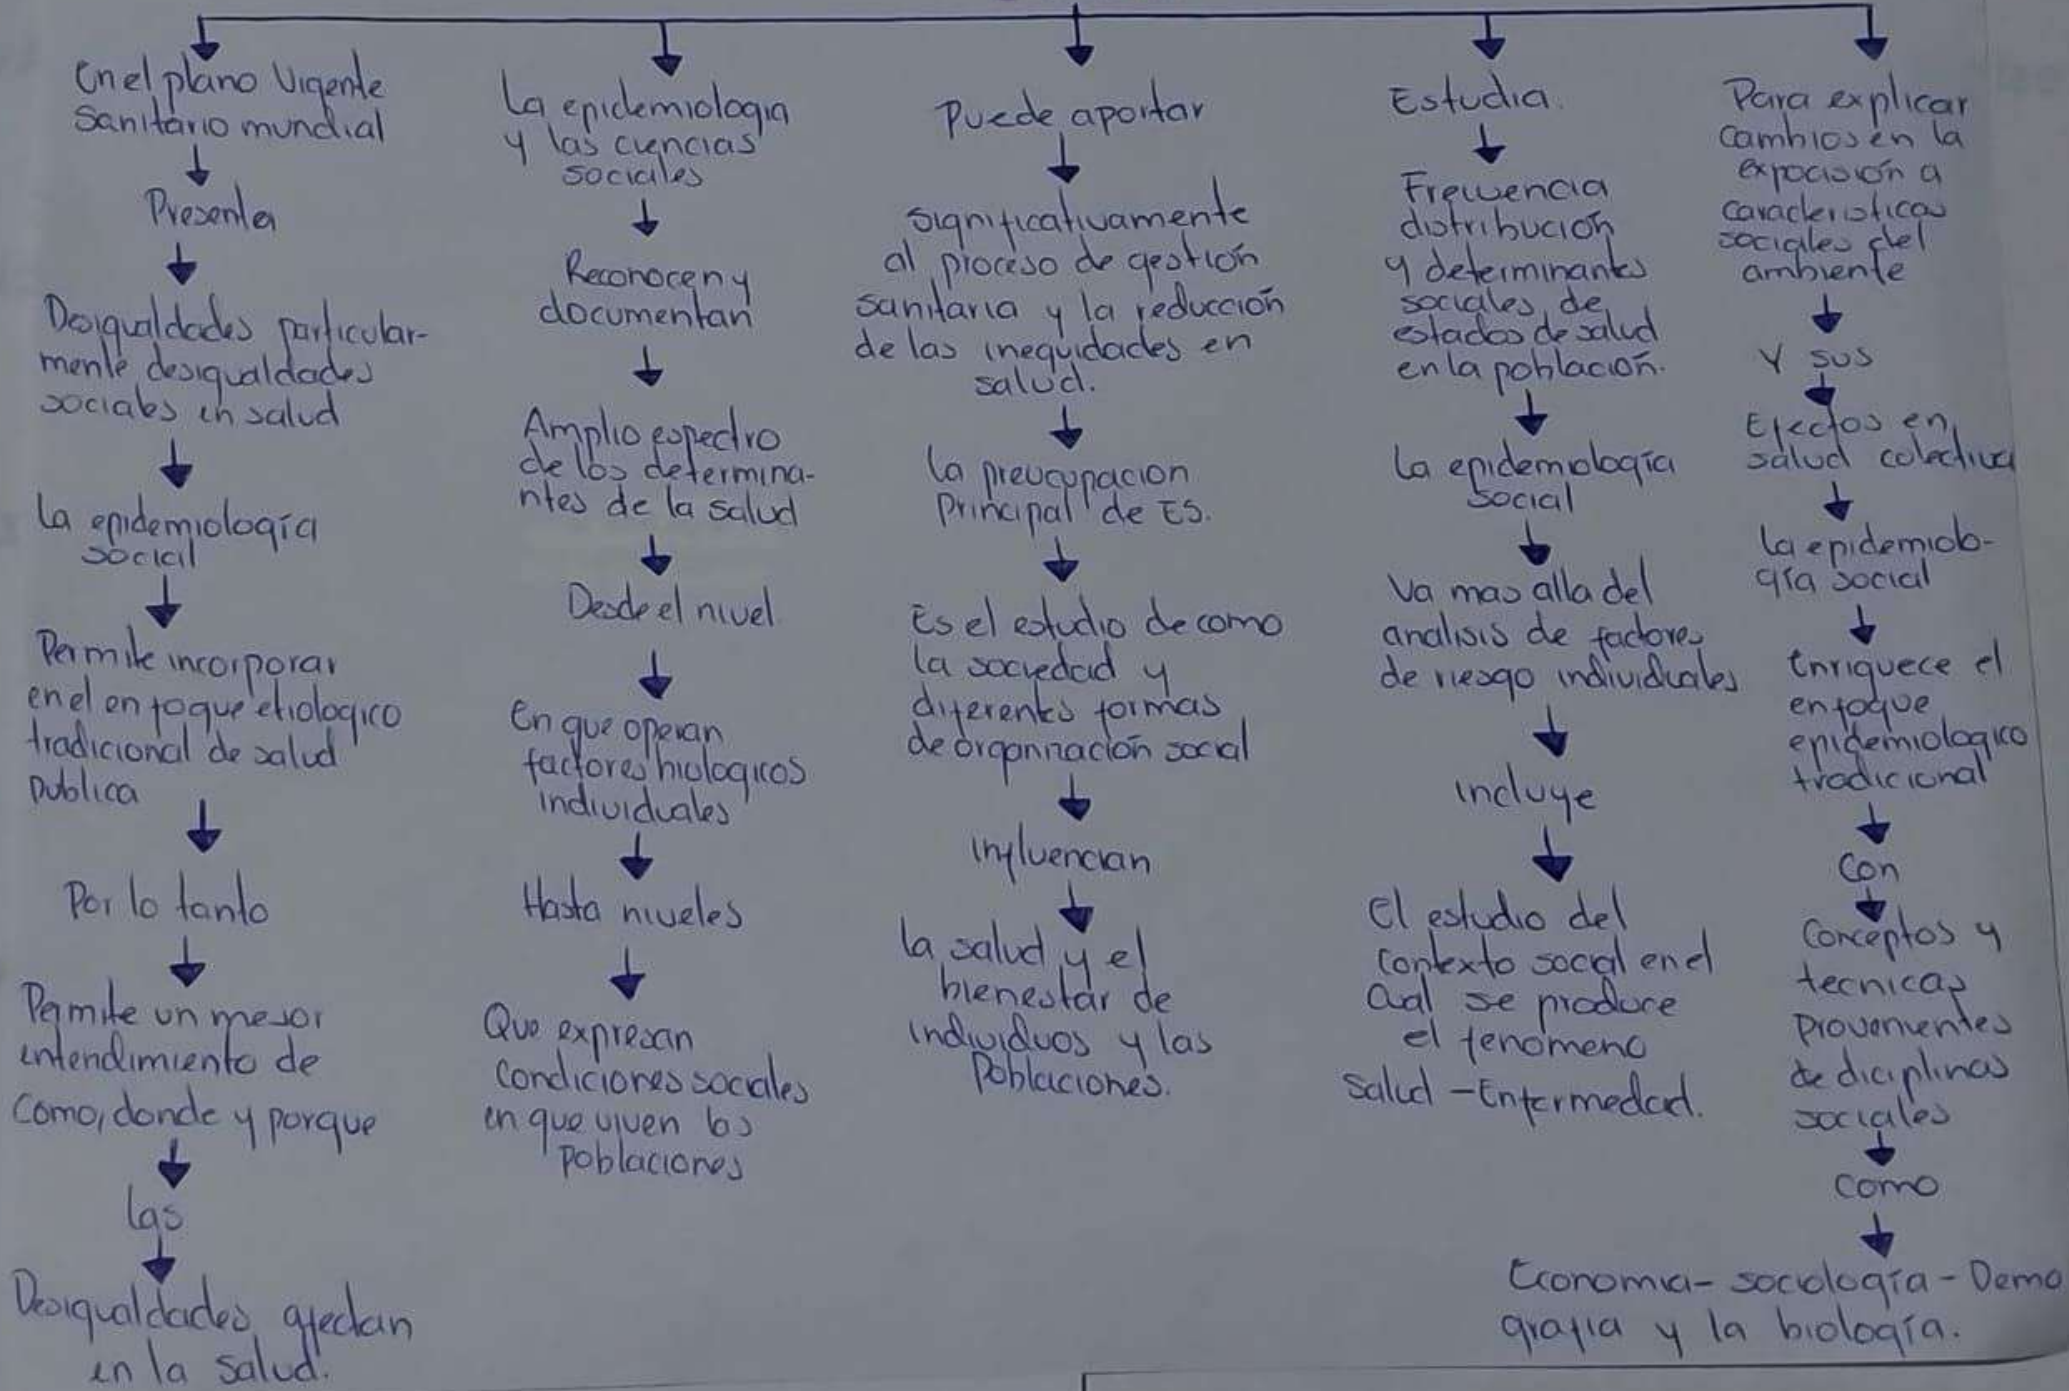 En el plano Vigente
Sanitario mundial
Presenta
Desigualdades particular-
mente desigualdades
sociales en salud
La epidemiología
social
Permite incorporar
en el enfoque etiologico
tradicional de salud
publica
Por lo tanto
Permite un mejor
entendimiento de
Como, donde y porque
las
Desigualdades afectan
en la salud.
La epidemiologia
y las ciencias
sociales
Reconocen y
documentan
Amplio espectro
de los determina-
ntes de la salud
Desde el nivel
En que operan
factores biologicos
individuales
Hasta niveles
Que expresan
Condiciones sociales
en que viven los
Poblaciones
Puede aportar
significativamente
al proceso de gestión
sanitaria y la reducción
de las inequidades en
salud.
La preucupacion
Principal de ES.
Es el estudio de como
la sociedad y
diferentes formas
de organización social
influencian
la salud y el
bienestar de
individuos y las
Poblaciones.
Estudia.
Frecuencia
distribución
y determinantes
sociales de
estados de salud
en la población.
La epidemiología
social
Va mas alla del
analisis de factores
de riesgo individuales
incluye
El estudio del
contexto social en el
cual se produce
el fenomeno
salud - Enfermedad.
Para explicar
cambios en la
expocisión a
caracteristicas
sociales del
ambiente
Y sus
Efectos en
salud colectiva
la epidemiolo-
gía social
Enriquece el
enfoque
epidemiologico
tradicional
Con
Conceptos y
tecnicas
Provenientes
de diciplinas
sociales
como
Economia - sociología - Demo
grafia y la biología.